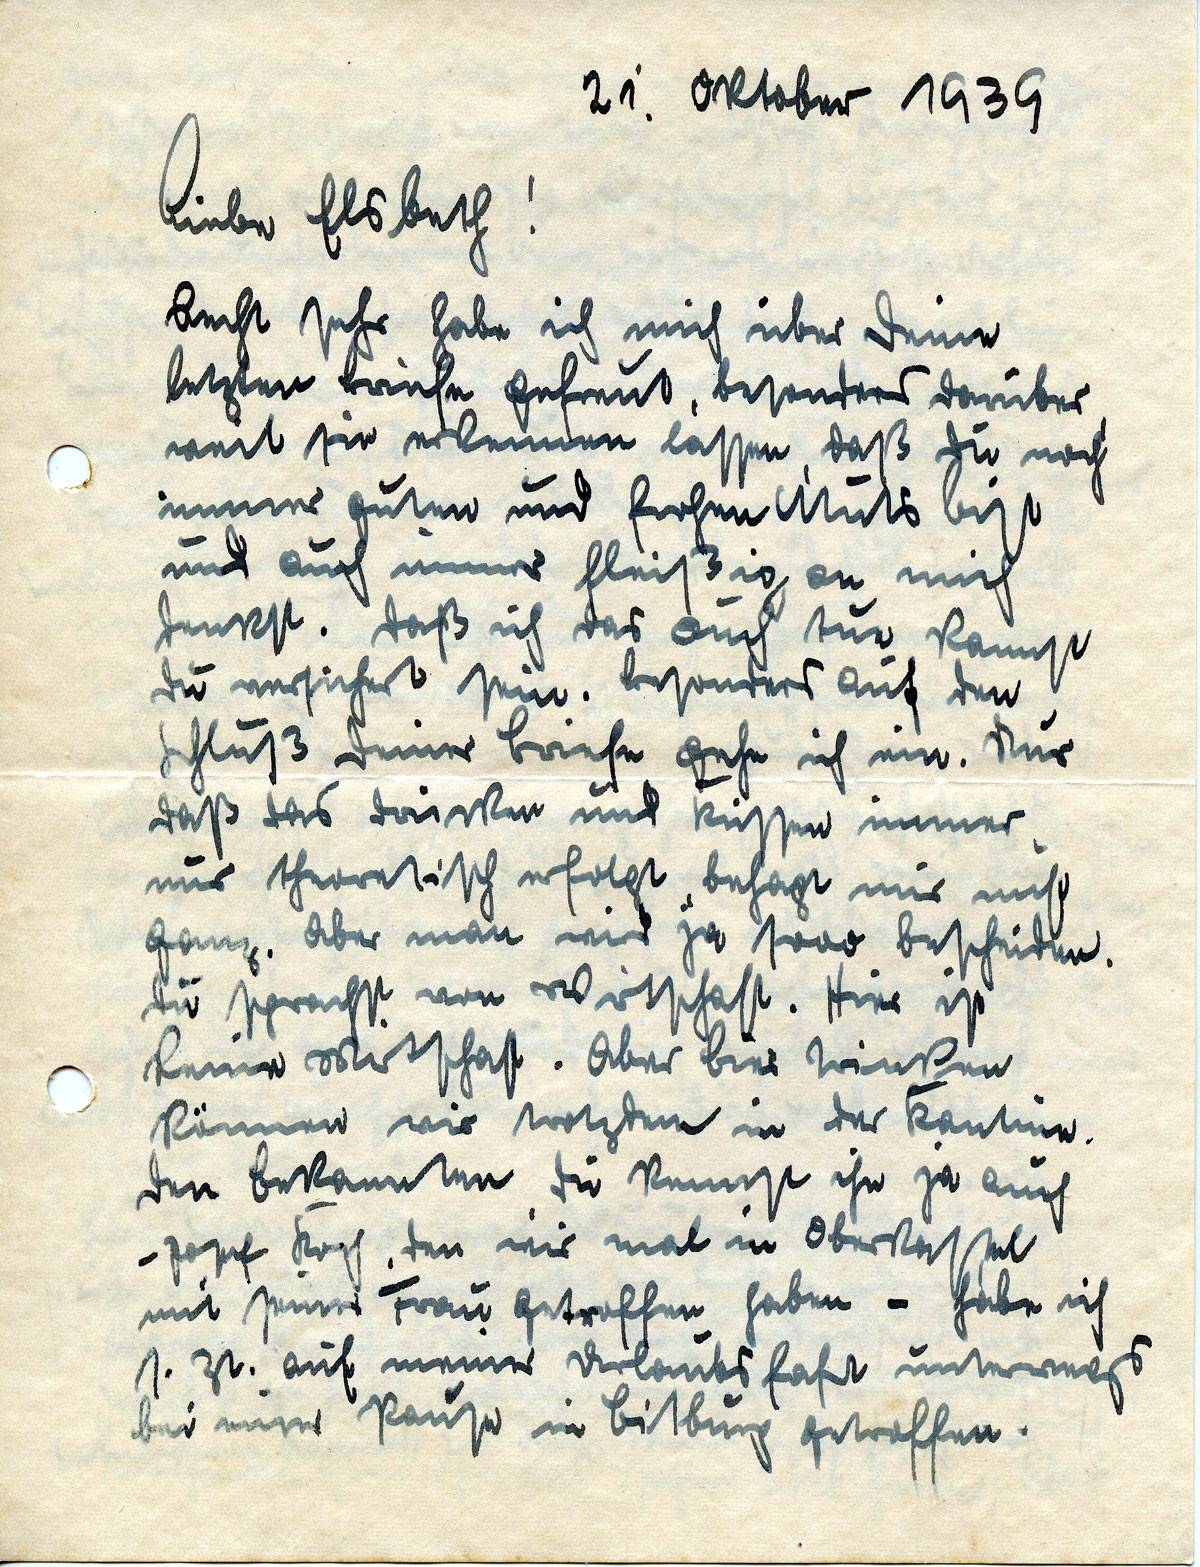 21. Oktober 1939
Liebe Elsbeth!
Recht sehr habe ich mich über Deine
letzten Briefe gefreut, besonders darüber,
weil sie erkennen lassen, daß Du noch
immer guten und frohen Muts bist
und auch immer fleißig an mich
denkst. Daß ich das auch tue kannst
Du versichert sein. Besonders auf den
Schluß Deiner Briefe gehe ich ein. Nur
daß das Drücken und Küssen immer
nur theoretisch erfolgt, behagt mir nicht
ganz. Aber man wird ja sooo bescheiden.
Du sprachst von Wirtschaft. Hier ist
keine Wirtschaft. Aber Bier trinken
können wir trotzdem in der Kantine.
Den Bekannten Du kennst ihn ja auch
- Josef Koch, den wir mal in Oberkassel
mit seiner Frau getroffen haben - habe ich
s. Zt. auf meiner Urlaubsfahrt unterwegs
bei einer Pause in Bitburg getroffen.